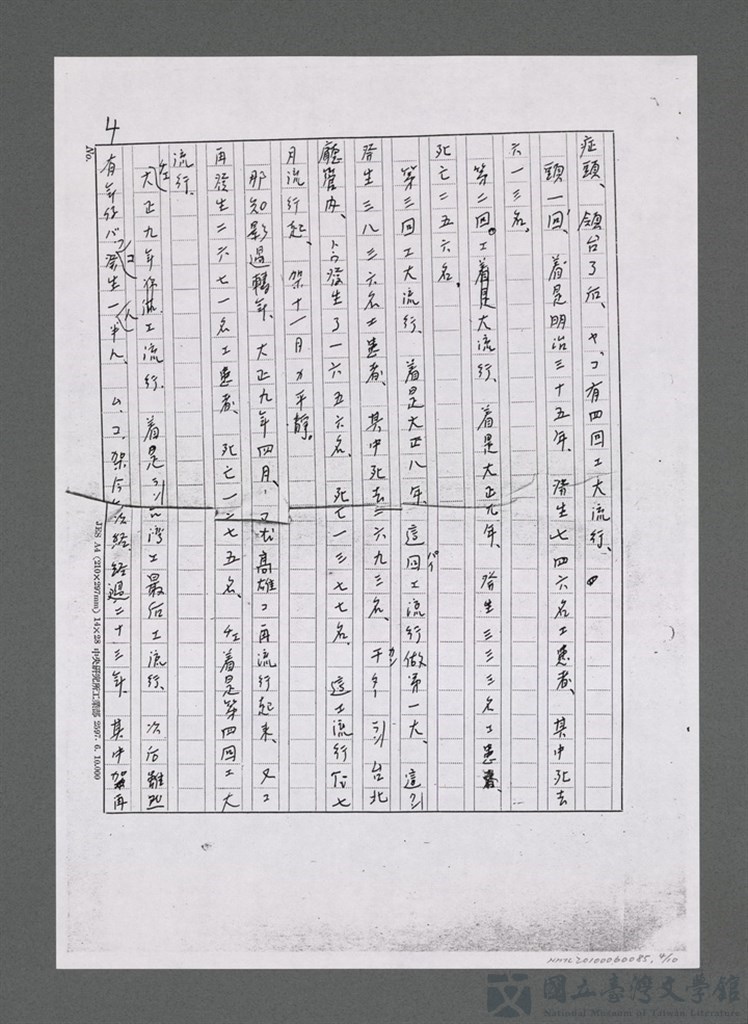 4
症頭、領台了后、ヤ、コ有四回エ大流行、
頭一回、着是明治三十五年、發生七四六名エ患者、其中死去
六一三名。
第二回。エ着是大流行、着是大正九年、發生三三三名エ患者、
死亡二五六名。
第三回エ大流行、着是大正八年、這回エ流行做第一大、這
發生三八三六名エ患者、其中死去二六九三名、干ター 台北
廳管内、トウ發生了一六五六名、死亡一三七七名、這エ流行 七
月流行起、架十一月カ平靜。
那知影過轉年、大正九年四月、 高雄コ再流行起来、又コ
再發生二六七一名エ患者、死亡一六七五名、 着是第四回エ大
流行、
大正九年 エ流行、着是 台湾エ最后エ流行、次后雖然
有 發生一半人、ム、コ、架今次経、経過二十三年、其中 再
No.
JES A4 (210×297mm) 14×28 中央研究所工業部 2597. 6. 10,000
NMTL20100060085, 4/10
國立臺灣文學館
National Museum of Taiwan Literature